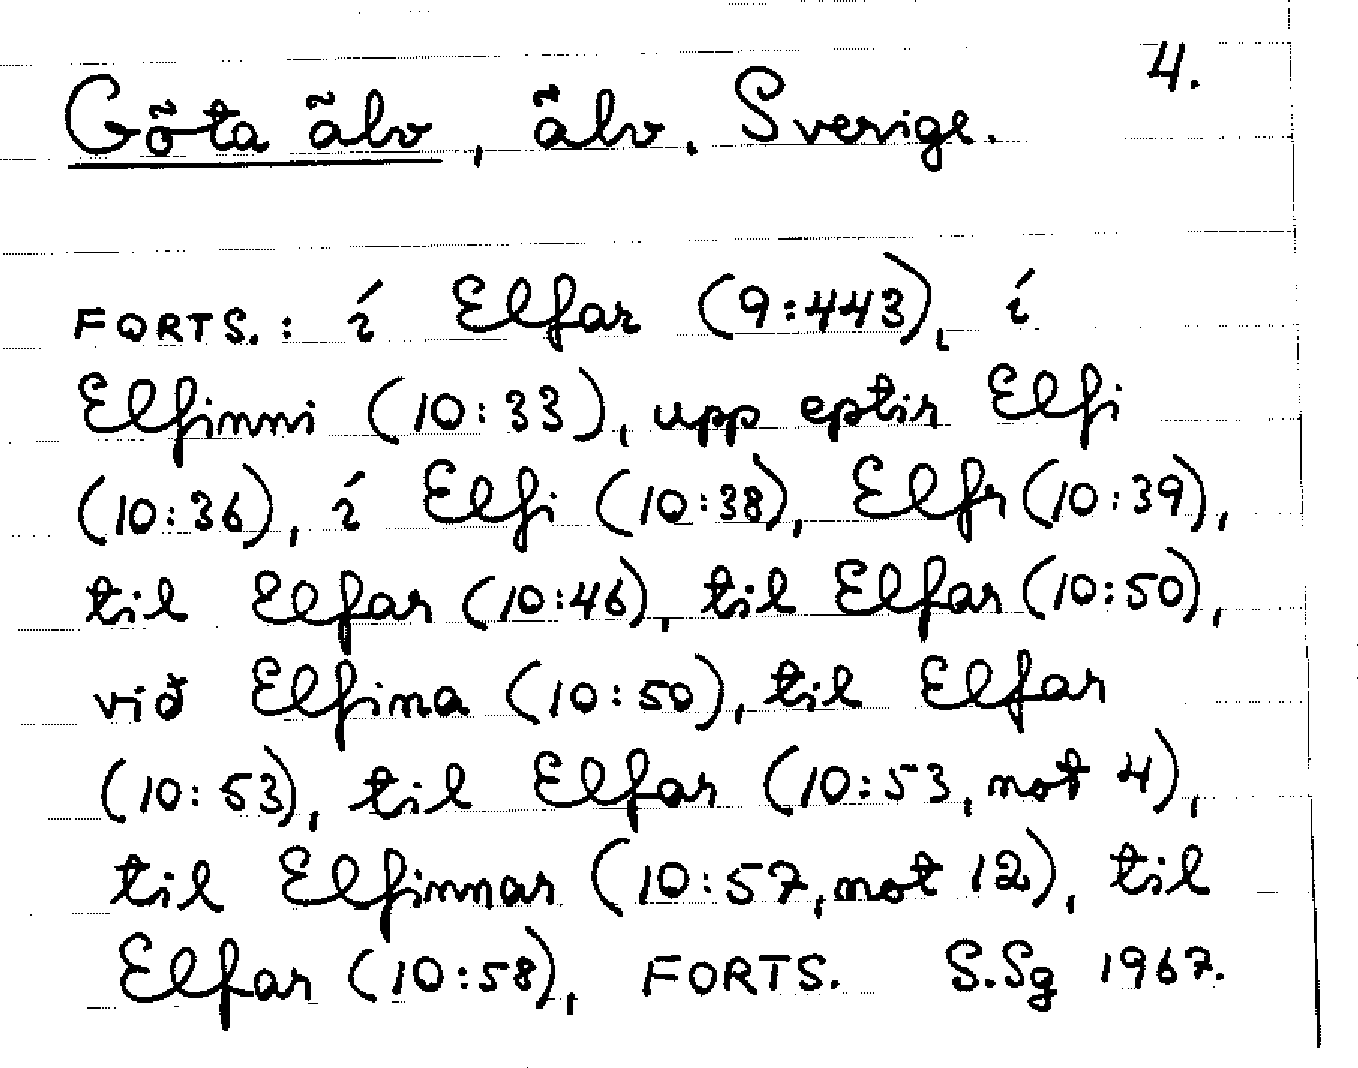 4.
Göta älv, älv. Sverige.
FORTS.: í Elfar (9:443), í
Elfinni (10:33), upp eptir Elfi
(10:36), í Elfi (10:38), Elfr (10:39),
til Elfar (10:46), til Elfar (10:50),
við Elfina (10:50), til Elfar
(10:53), til Elfar (10:53, not 4),
til Elfinnar (10:57, not 12), til
Elfar (10:58), FORTS. S.Sg 1967.